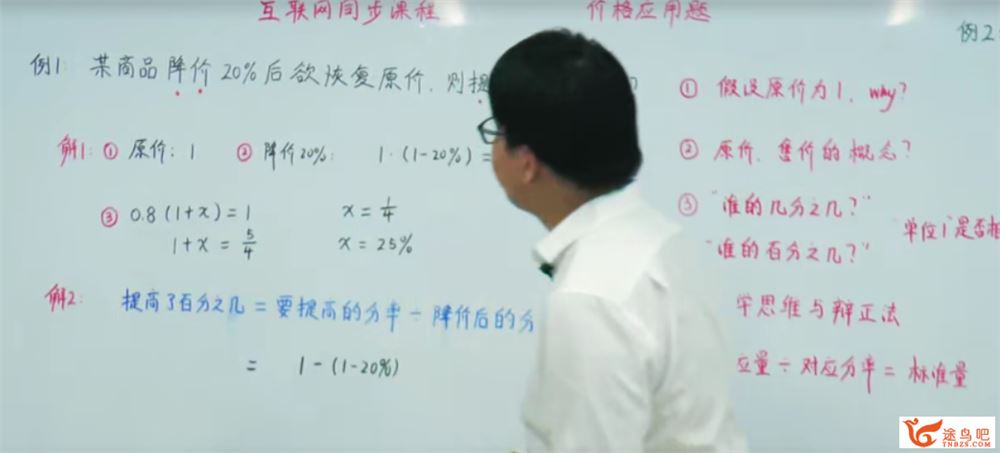 互联网同步课程
价格应用题
例2
例1: 某商品降价20%后欲恢复原价,则提
?
① 假设原价为1, why?
解1: ① 原价: 1 ② 降价20%: 1·(1-20%) =
② 原价、售价的概念?
③ 0.8(1+x)=1 x=1/4
1+x=5/4 x=25%
③ "谁的几分之几?"
"谁的百分之几?"
"单位1"是否相
解2: 提高了百分之几=要提高的分率÷降价后的分
= 1-(1-20%)
学思维与辩正法
应量÷对应分率=标准量
途鸟吧
TNBZS.COM